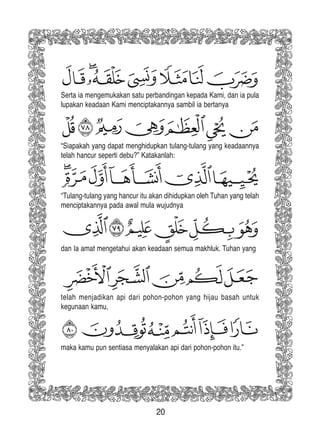 وَضَرَبَ لَنَا مَثَلًا وَنَسِيَ خَلْقَهُۥ ۖ قَالَ
Serta ia mengemukakan satu perbandingan kepada Kami, dan ia pula
lupakan keadaan Kami menciptakannya sambil ia bertanya
مَن يُحْيِ ٱلْعِظَـٰمَ وَهِيَ رَمِيمٌ ٧٨ قُلْ
“Siapakah yang dapat menghidupkan tulang-tulang yang keadaannya
telah hancur seperti debu?” Katakanlah:
يُحْيِيهَا ٱلَّذِىٓ أَنشَأَهَآ أَوَّلَ مَرَّةٍ ۖ
“Tulang-tulang yang hancur itu akan dihidupkan oleh Tuhan yang telah
menciptakannya pada awal mula wujudnya
وَهُوَ بِكُلِّ خَلْقٍ عَلِيمٌ ٧٩ ٱلَّذِى
dan Ia amat mengetahui akan keadaan semua makhluk. Tuhan yang
جَعَلَ لَكُم مِّنَ ٱلشَّجَرِ ٱلْأَخْضَرِ
telah menjadikan api dari pohon-pohon yang hijau basah untuk
kegunaan kamu,
نَارًا فَإِذَآ أَنتُم مِّنْهُ تُوقِدُونَ ٨٠
maka kamu pun sentiasa menyalakan api dari pohon-pohon itu.”
20